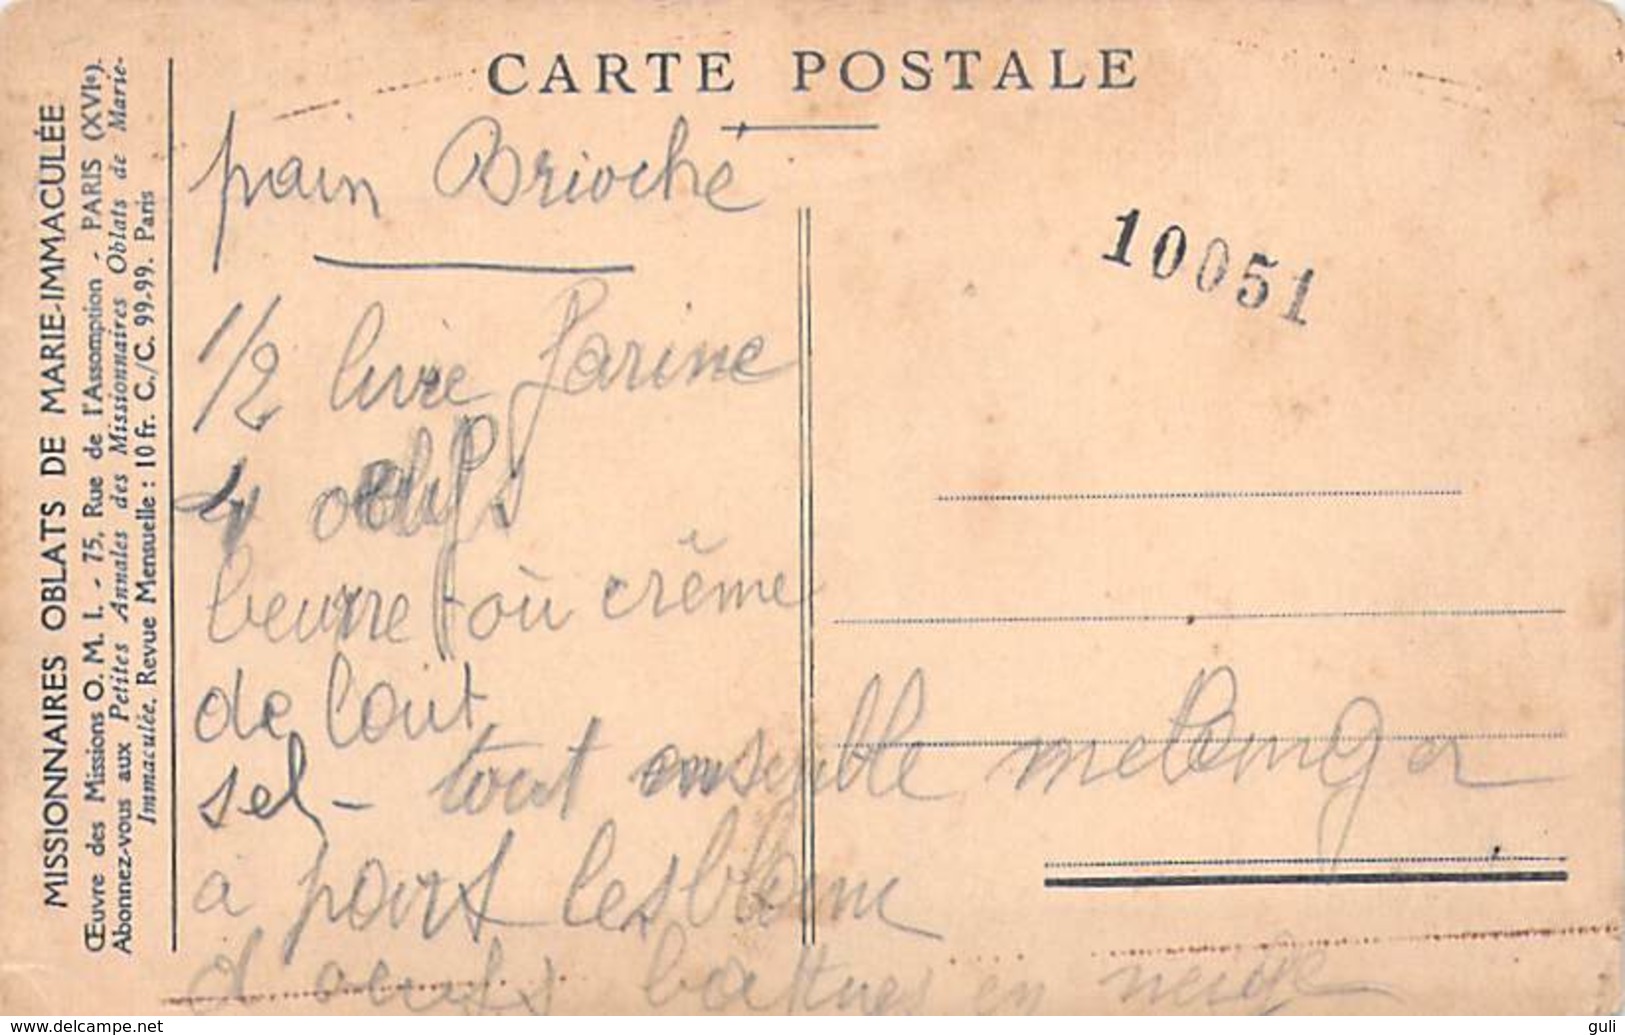 CARTE POSTALE
MISSIONNAIRES OBLATS DE MARIE-IMMACULÉE
Œuvre des Missions O. M. I. - 75, Rue de l'Assomption - PARIS (XVIe).
Abonnez-vous aux Petites Annales des Missionnaires Oblats de Marie-
Immaculée, Revue Mensuelle : 10 fr. C./C. 99-99. Paris
pain Brioché
10051
1/2 livre farine
4 oeufs
beurre où crême
de lait
sel - tout ensemble melanger
a part les blanc
d oeufs battues en neige
www.delcampe.net
guli